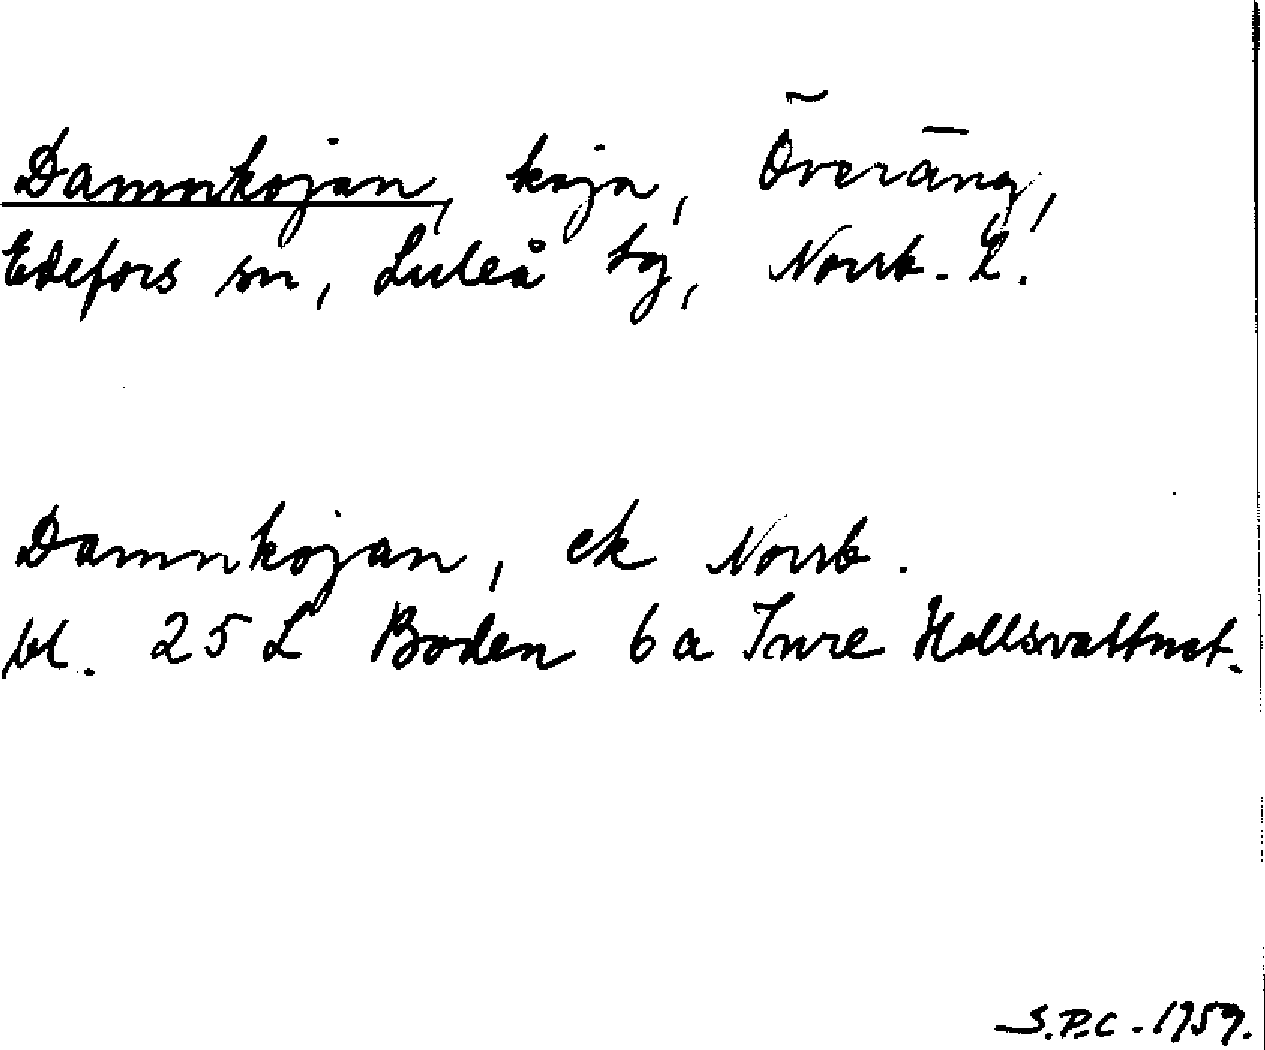 Damnkojan, koja, Överäng,
Edefors sn, Luleå tg, Norrb. L.
Damnkojan, ek Norrb.
bl. 25 L Boden 6a Inre Hollsvattnet.
S.P.C - 1959.